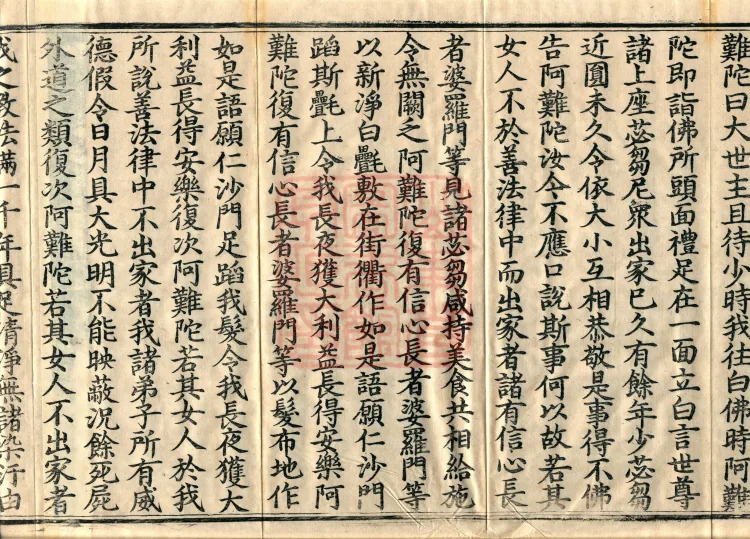 難陀曰大世主且待少時我往白佛時阿難
陀即詣佛所頭面禮足在一面立白言世尊
諸上座苾芻尼衆出家已久有餘年少苾芻
近圓未久令依大小互相恭敬是事得不佛
告阿難陀汝今不應口說斯事何以故若其
女人不於善法律中而出家者諸有信心長
者婆羅門等見諸苾芻咸持美食共相給施
令無闕之阿難陀復有信心長者婆羅門等
以新淨白㲲敷在街衢作如是語願仁沙門
蹈斯㲲上令我長夜獲大利益長得安樂阿
難陀復有信心長者婆羅門等以髮布地作
如是語願仁沙門足蹈我髮令我長夜獲大
利益長得安樂復次阿難陀若其女人於我
所說善法律中不出家者我諸弟子所有威
德假令日月具大光明不能映蔽況餘死屍
外道之類復次阿難陀若其女人不出家者
我之教法滿一千年具足清淨無諸染汙由